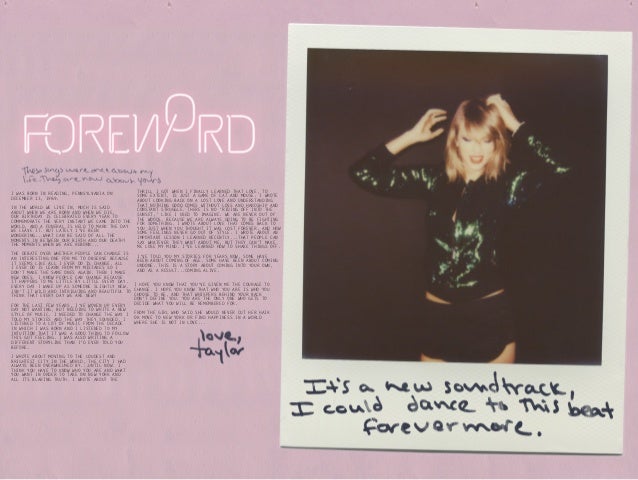 FOREWORD
These songs were once about my
life. They are now about yours
I WAS BORN IN READING, PENNSYLVANIA ON
DECEMBER 13, 1989.
IN THE WORLD WE LIVE IN, MUCH IS SAID
ABOUT WHEN WE ARE BORN AND WHEN WE DIE.
OUR BIRTHDAY IS CELEBRATED EVERY YEAR TO
COMMEMORATE THE VERY INSTANT WE CAME INTO THE
WORLD. AND A FUNERAL IS HELD TO MARK THE DAY
WE LEAVE IT. BUT LATELY I'VE BEEN
WONDERING... WHAT CAN BE SAID OF ALL THE
MOMENTS IN BETWEEN OUR BIRTH AND OUR DEATH?
THE MOMENTS WHEN WE ARE REBORN...
THE DEBATE OVER WHETHER PEOPLE CAN CHANGE IS
AN INTERESTING ONE FOR ME TO OBSERVE BECAUSE
IT SEEMS LIKE ALL I EVER DO IS CHANGE. ALL
I EVER DO IS LEARN FROM MY MISTAKES SO I
DON'T MAKE THE SAME ONES AGAIN. THEN I MAKE
NEW ONES. I KNOW PEOPLE CAN CHANGE BECAUSE
IT HAPPENS TO ME LITTLE BY LITTLE EVERY DAY.
EVERY DAY I WAKE UP AS SOMEONE SLIGHTLY NEW.
ISN'T IT WILD AND INTRIGUING AND BEAUTIFUL TO
THINK THAT EVERY DAY WE ARE NEW?
FOR THE LAST FEW YEARS, I'VE WOKEN UP EVERY
DAY NOT WANTING, BUT NEEDING TO WRITE A NEW
STYLE OF MUSIC. I NEEDED TO CHANGE THE WAY I
TOLD MY STORIES AND THE WAY THEY SOUNDED. I
LISTENED TO A LOT OF MUSIC FROM THE DECADE
IN WHICH I WAS BORN AND I LISTENED TO MY
INTUITION THAT IT WAS A GOOD THING TO FOLLOW
THIS GUT FEELING. I WAS ALSO WRITING A
DIFFERENT STORYLINE THAN I'D EVER TOLD YOU
BEFORE.
I WROTE ABOUT MOVING TO THE LOUDEST AND
BRIGHTEST CITY IN THE WORLD, THE CITY I HAD
ALWAYS BEEN OVERWHELMED BY... UNTIL NOW. I
THINK YOU HAVE TO KNOW WHO YOU ARE AND WHAT
YOU WANT IN ORDER TO TAKE ON NEW YORK AND
ALL ITS BLARING TRUTH. I WROTE ABOUT THE
THRILL I GOT WHEN I FINALLY LEARNED THAT LOVE, TO
SOME EXTENT, IS JUST A GAME OF CAT AND MOUSE. I WROTE
ABOUT LOOKING BACK ON A LOST LOVE AND UNDERSTANDING
THAT NOTHING GOOD COMES WITHOUT LOSS AND HARDSHIP AND
CONSTANT STRUGGLE. THERE IS NO "RIDING OFF INTO THE
SUNSET," LIKE I USED TO IMAGINE. WE ARE NEVER OUT OF
THE WOODS, BECAUSE WE ARE ALWAYS GOING TO BE FIGHTING
FOR SOMETHING. I WROTE ABOUT LOVE THAT COMES BACK TO
YOU JUST WHEN YOU THOUGHT IT WAS LOST FOREVER, AND HOW
SOME FEELINGS NEVER GO OUT OF STYLE. I WROTE ABOUT AN
IMPORTANT LESSON I LEARNED RECENTLY... THAT PEOPLE CAN
SAY WHATEVER THEY WANT ABOUT ME, BUT THEY CAN'T MAKE
ME LOSE MY MIND. I'VE LEARNED HOW TO SHAKE THINGS OFF.
I'VE TOLD YOU MY STORIES FOR YEARS NOW. SOME HAVE
BEEN ABOUT COMING OF AGE. SOME HAVE BEEN ABOUT COMING
UNDONE. THIS IS A STORY ABOUT COMING INTO YOUR OWN,
AND AS A RESULT... COMING ALIVE.
I HOPE YOU KNOW THAT YOU'VE GIVEN ME THE COURAGE TO
CHANGE. I HOPE YOU KNOW THAT WHO YOU ARE IS WHO YOU
CHOOSE TO BE, AND THAT WHISPERS BEHIND YOUR BACK
DON'T DEFINE YOU. YOU ARE THE ONLY ONE WHO GETS TO
DECIDE WHAT YOU WILL BE REMEMBERED FOR.
FROM THE GIRL WHO SAID SHE WOULD NEVER CUT HER HAIR
OR MOVE TO NEW YORK OR FIND HAPPINESS IN A WORLD
WHERE SHE IS NOT IN LOVE...
love,
taylor
It's a new soundtrack,
I could dance to this beat
forevermore.